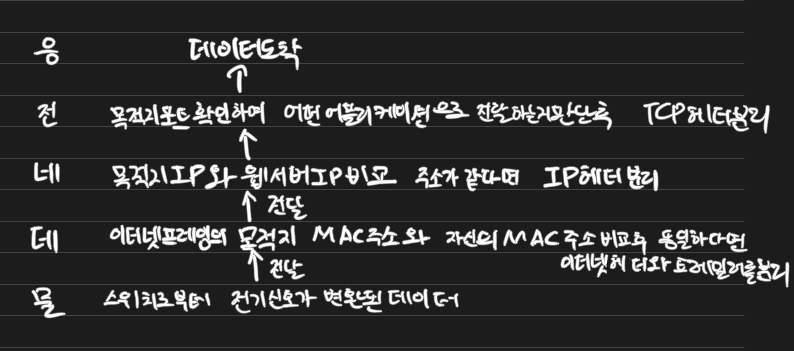 응 데이터도착
↑
전 목적지포트 확인하여 어떤 어플리케이션으로 전달하는지판단후 TCP헤더분리
↑
네 목적지IP와 웹서버IP비교 주소가 같다면 IP헤더 분리
↑ 전달
데 이더넷프레임의 목적지 MAC주소와 자신의 MAC주소 비교후 동일하다면
이더넷헤더와 트레일러를분리
↑ 전달
물 스위치로부터 전기신호가 변환된 데이터